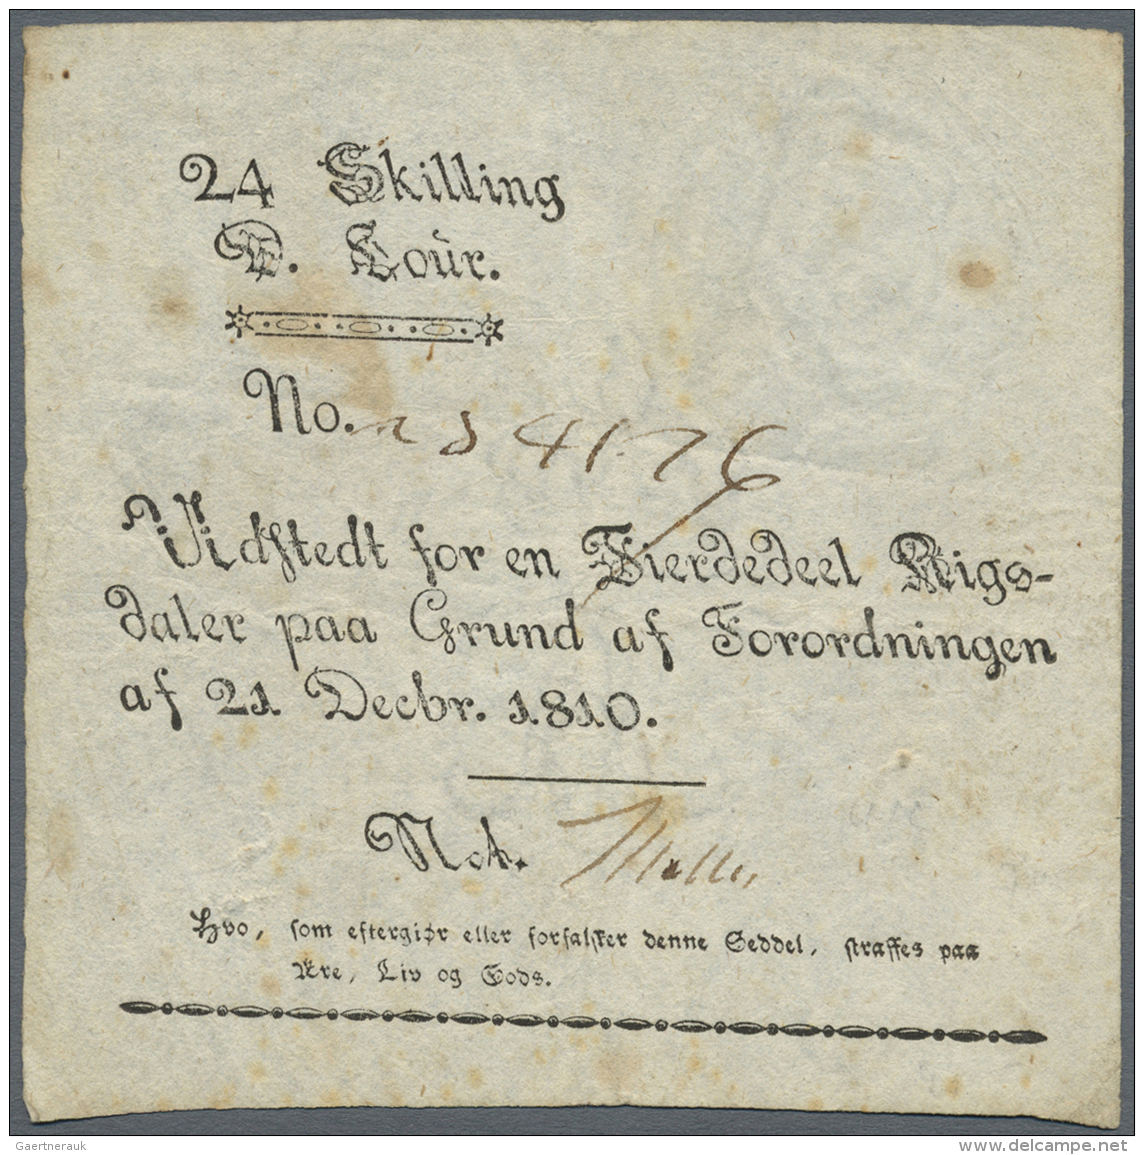 24 Skilling
D. Cour.
No. 234176
Udstedt for en Fierdedeel Rigs-
daler paa Grund af Forordningen
af 21 Decbr. 1810.
Not. Møller
Hvo, som eftergiør eller forfalsker denne Seddel, straffes paa
Ære, Liv og Gods.
Gaertnerauk
www.delcampe.net